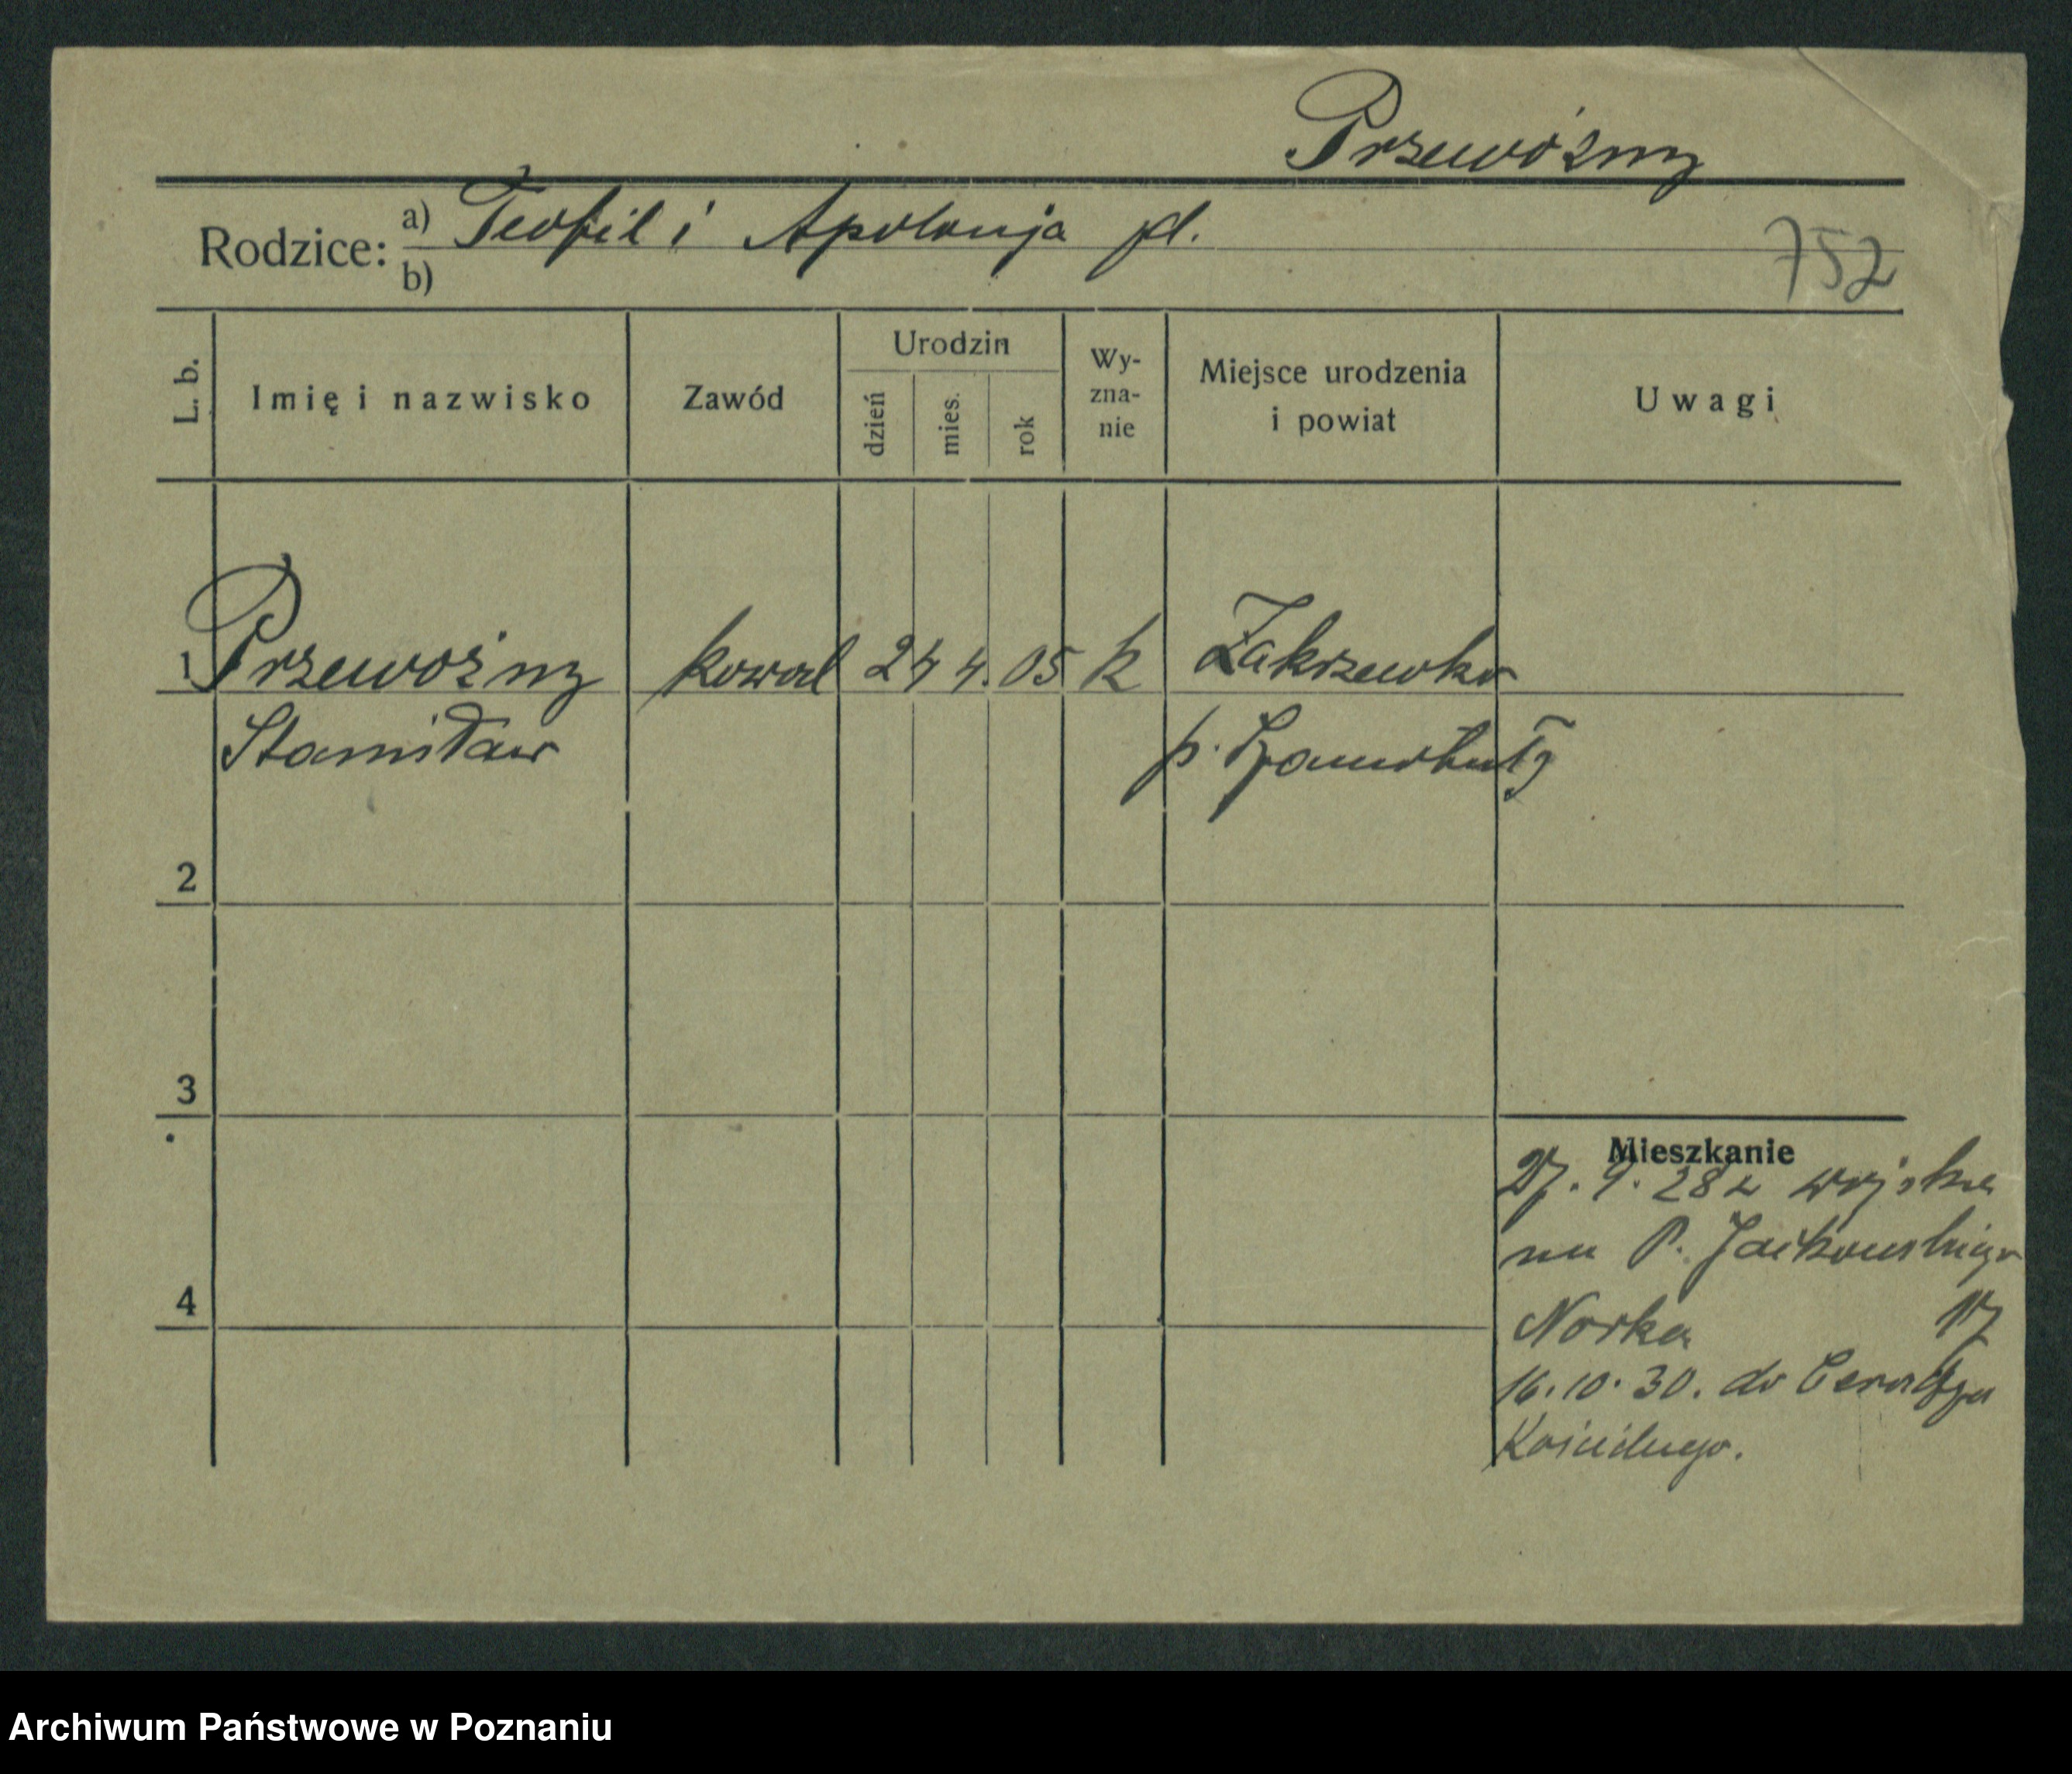 Przewoźny
Rodzice: a) Teofil i Apolonja pl.
b)
752
L. b.
Imię i nazwisko
Zawód
Urodzin
dzień
mies.
rok
Wy-
zna-
nie
Miejsce urodzenia
i powiat
Uwagi
1 Przewoźny kowal 24 4. 05 k Zakrzewko
Stanisław p. Szamotuły
2
3
4
Mieszkanie
27. 9. 28 z wojska
na P. Jackowskiego
Norka 17
16. 10. 30. do Ceradza
Kościelnego.
Archiwum Państwowe w Poznaniu